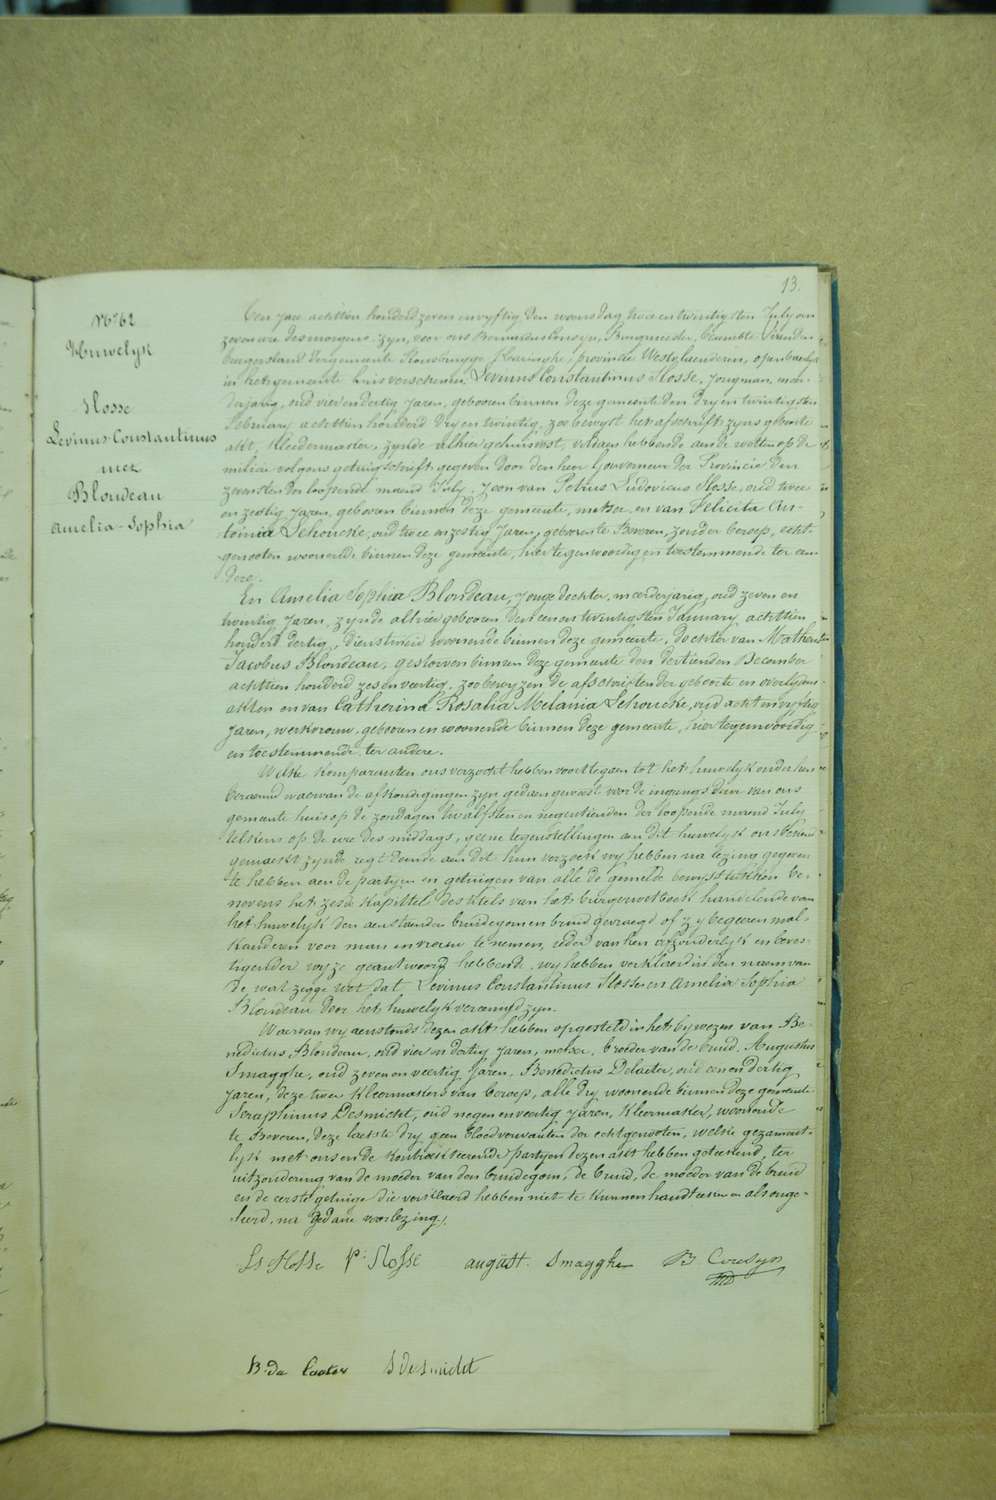 13.
N° 62
Huwelyk
Slosse
Levinus Constantinus
met
Blondeau
Amelia-Sophia
Een jaer achttien honderd zeven en vyftig den woensdag twee en twintigsten July om
zeven ure des morgens zyn, voor ons Bernardus Coresyn, Burgmeester, Beambte van den
burgerstand der gemeente provincie Westvlaenderen, openbaerlyk
in het gemeente huis verschenen Levinus Constantinus Slosse, jongman, meer-
derjarig, oud vier en dertig jaren, gebooren binnen deze gemeente den dry en twintigsten
february achttien honderd dry en twintig, zoo bewyst het afschrift zyns geboorte
akt, kleermaeker, zynde alhier gehuisvest, voldaen hebbende aen de wetten op de
milicie volgens getuigschrift gegeven door den heer Gouverneur der Provincie den
zevensten der loopende maend July. Zoon van Petrus Ludovicus Slosse, oud twee
en zestig jaren, gebooren binnen deze gemeente, metser, en van Felicita An-
tonia Lehoucke, oud twee en zestig jaren, gebooren te Beveren, zonder beroep, echt-
genooten woonende binnen deze gemeente, hier tegenwoordig en toestemmende ter een
dere.
En Amelia Sophia Blondeau, jonge dochter, meerderjarig, oud zeven en
twintig jaren, zynde alhier gebooren den eenen twintigsten January achttien
honderd dertig, dienstmeid woonende binnen deze gemeente, dochter van Matheus
Jacobus Blondeau, gestorven binnen deze gemeente den dertienden December
achttien honderd zes en veertig, zoo bewyzen de afschriften der geboorte en overlydens-
akten en van Catherina Rosalia Melania Lehoucke, oud acht en vyftig
jaren, werkvrouw, gebooren en woonende binnen deze gemeente, hier tegenwoordig
en toestemmende ter andere.
Welke komparanten ons verzocht hebben voorttegaen tot het huwelyk onder hen
beraemd waervan de afkondigingen zyn gedaen geweest voor de ingangs deur van ons
gemeente huis op de zondagen twaelfsten en negentienden der loopende maend July
telkens op de ure des middags, geene tegenstellingen aen dit huwelyk ons bekend
gemaekt zynde regt doende aen dit hun verzoek wy hebben na lezing gegeven
te hebben aen de partyen en getuigen van alle de gemelde bewysstukken be-
nevens het zesde kapittel des titels van het burgerwetboek handelende van
het huwelyk den aenstaenden bruidegom en bruid gevraegd of zy begeeren mal-
kanderen voor man en vrouw te nemen, ieder van hen afzonderlyk en beves-
tigender wyze geantwoord hebbende wy hebben verklaerd in den naem van
de wet zegge wet dat Levinus Constantinus Slosse en Amelia Sophia
Blondeau door het huwelyk vereenigd zyn.
Waervan wy aenstonds dezen akt hebben opgesteld in het bywezen van Be-
nedictus Blondeau, oud vier en dertig jaren, metser, broeder van de bruid, Augustus
Smagghe, oud zeven en veertig jaren, Benedictus Delaeter, oud een en dertig
jaren, deze twee kleermaekers van beroep, alle dry woonende binnen deze gemeente
Seraphinus Desmicht, oud negen en veertig jaren, kleermaeker, woonende
te Beveren, deze laetste dry geen bloedverwanten der echtgenooten, welke gezament-
lyk met ons en de kontrakteerende partyen dezen akt hebben geteekend, ter
uitzondering van de moeder van den bruidegom, de bruid, de moeder van de bruid
en de eerste getuige die verklaerd hebben niet te kunnen handteeken als onge-
leerd, na gedane voorlezing.
Ls Slosse P: Slosse august. Smagghe B. Coresyn
B. De Laeter S Desmicht